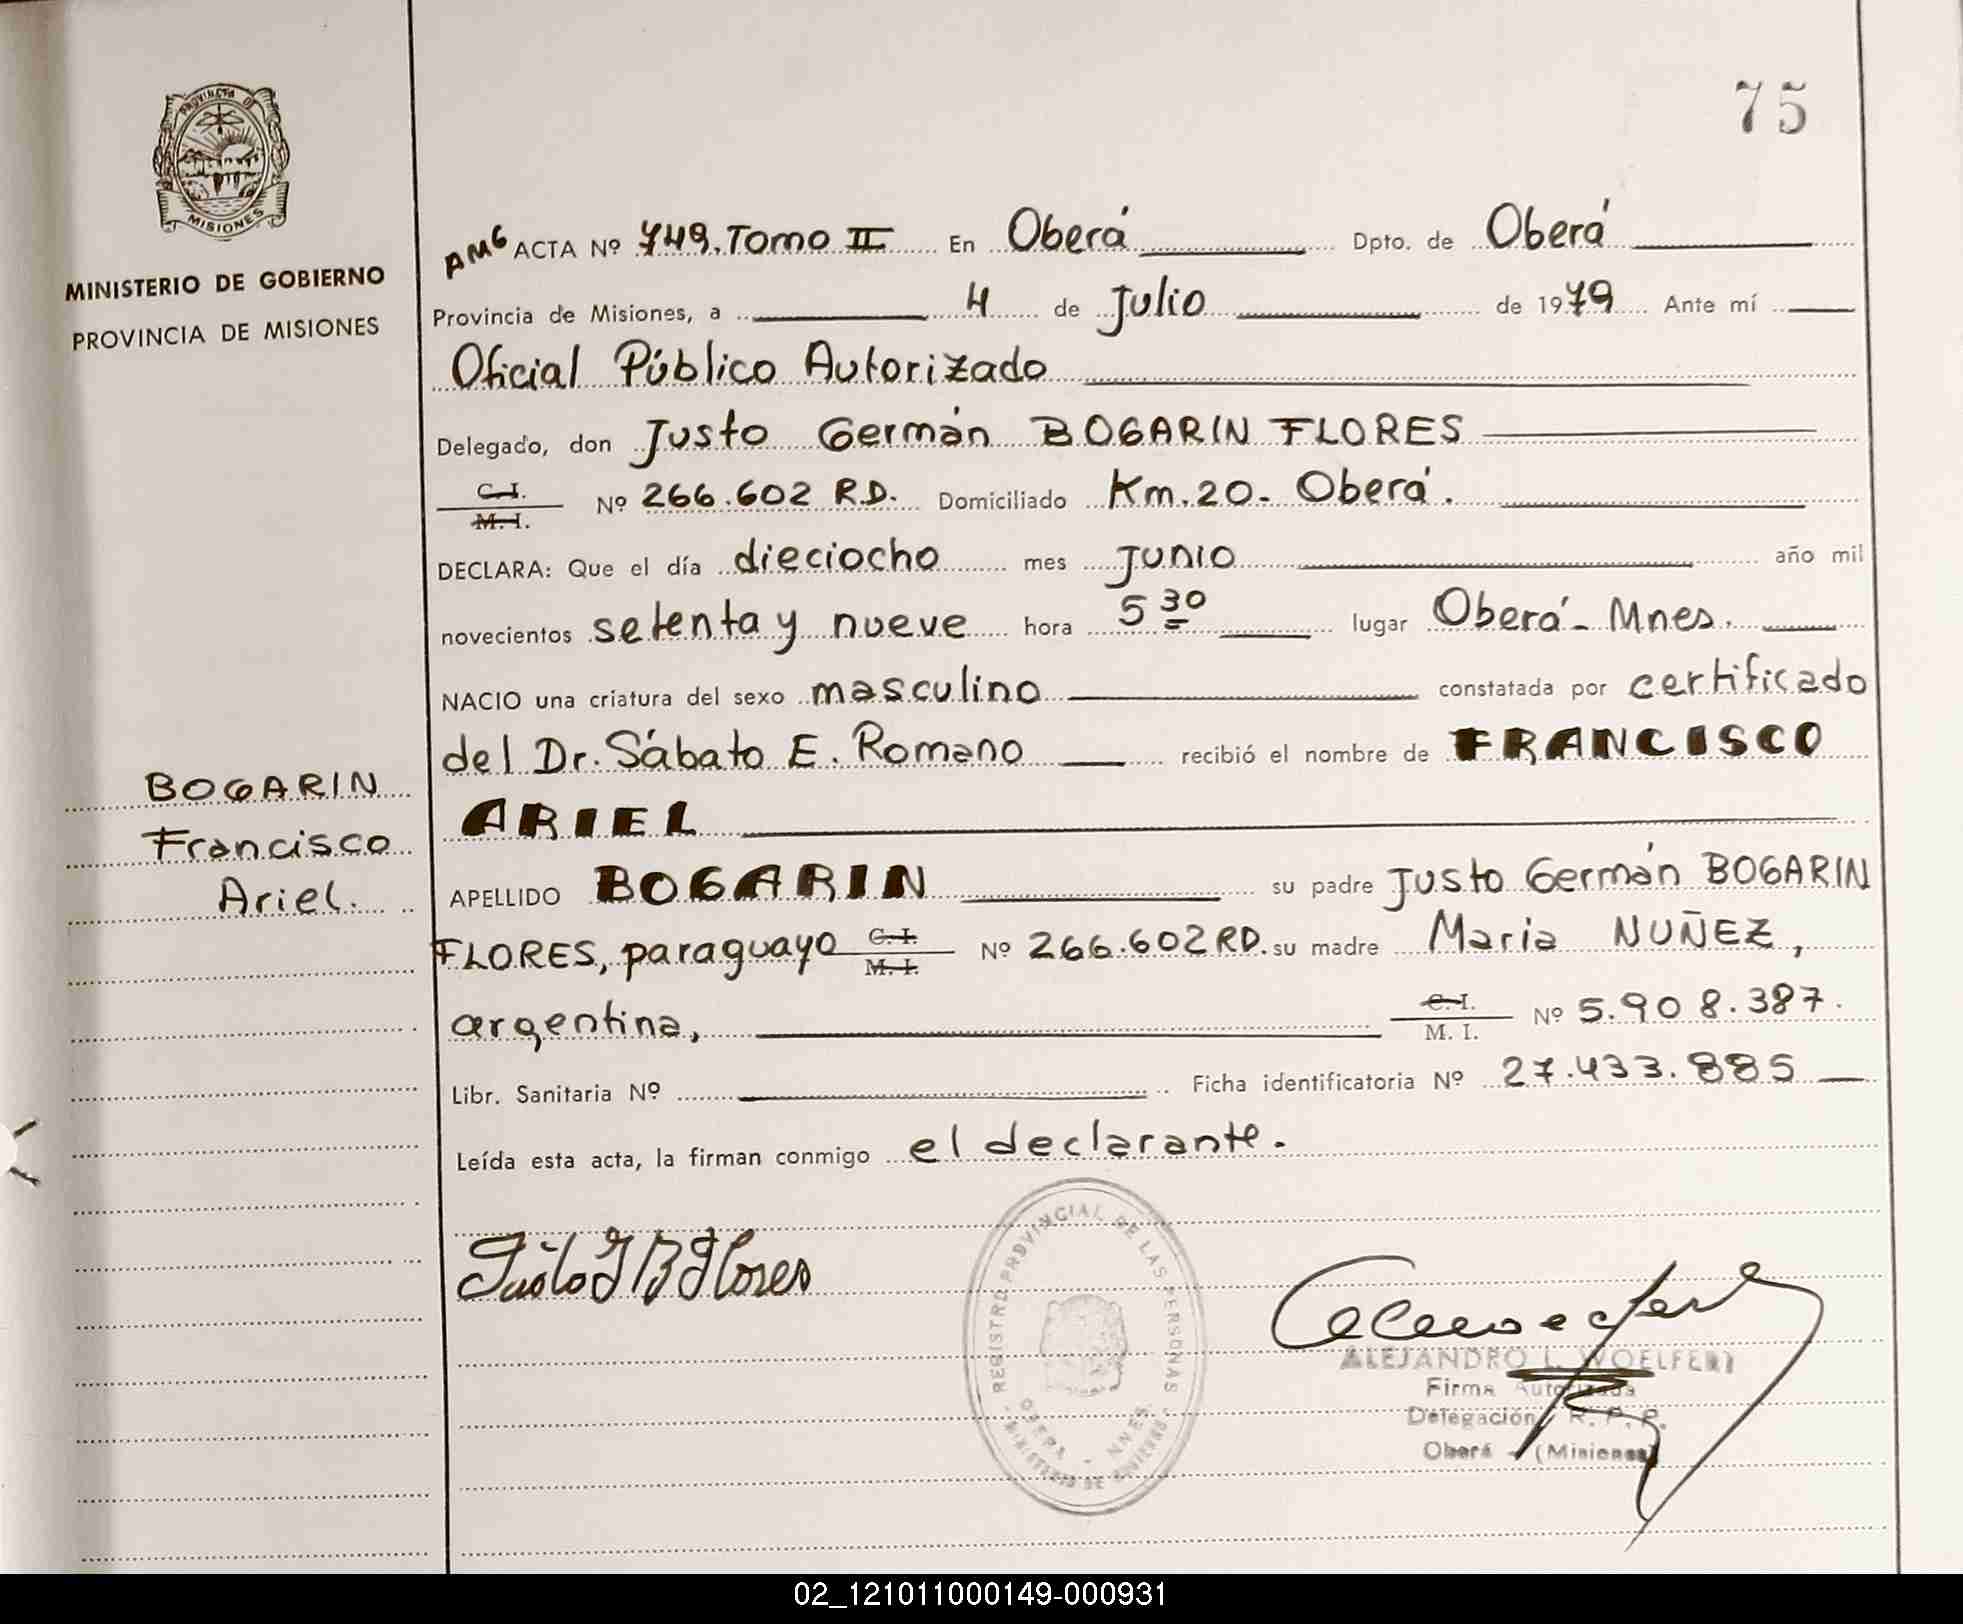 75
PROVINCIA DE
MISIONES
MINISTERIO DE GOBIERNO
PROVINCIA DE MISIONES
AMG ACTA Nº 749. Tomo II En Oberá Dpto. de Oberá
Provincia de Misiones, a 4 de Julio de 1979 Ante mí
Oficial Público Autorizado
Delegado, don Justo Germán BOGARIN FLORES
C. I.
M. I. Nº 266.602 R.D. Domiciliado Km.20- Oberá.
DECLARA: Que el día dieciocho mes Junio año mil
novecientos setenta y nueve hora 5 30 lugar Oberá - Mnes.
NACIO una criatura del sexo masculino constatada por certificado
del Dr. Sábato E. Romano recibió el nombre de FRANCISCO
ARIEL
APELLIDO BOGARIN su padre Justo Germán BOGARIN
FLORES, paraguayo C. I. M. I. Nº 266.602 RD. su madre Maria NUÑEZ,
argentina, C. I. M. I. Nº 5.908.387.
Libr. Sanitaria Nº Ficha identificatoria Nº 27.433.885
Leída esta acta, la firman conmigo el declarante.
BOGARIN
Francisco
Ariel.
Justo G B Flores
REGISTRO PROVINCIAL DE LAS PERSONAS
MINISTERIO DE GOBIERNO
ALEJANDRO L. WOELFERT
Firma Autorizada
Delegación R. P. P.
Oberá - (Misiones)
02_121011000149-000931